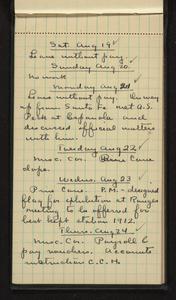 Sat. Aug 19
Leave without pay
Sunday Aug 20
No work
Monday Aug 21
Leave without pay. On way
up from Santa Fe met A.S.
Peck at Española and
discussed official matters
with him.
Tuesday Aug 22
Misc. Cor. Pine Cone
dope.
Wednes. Aug 23
Pine Cone. P.M. - designed
flag for exhibition at Ranger
meeting to be offered for
best kept station 1912.
Thurs. Aug 24
Misc. Cor. Payroll &
pay vouchers. Accounts
instruction C.C.H.